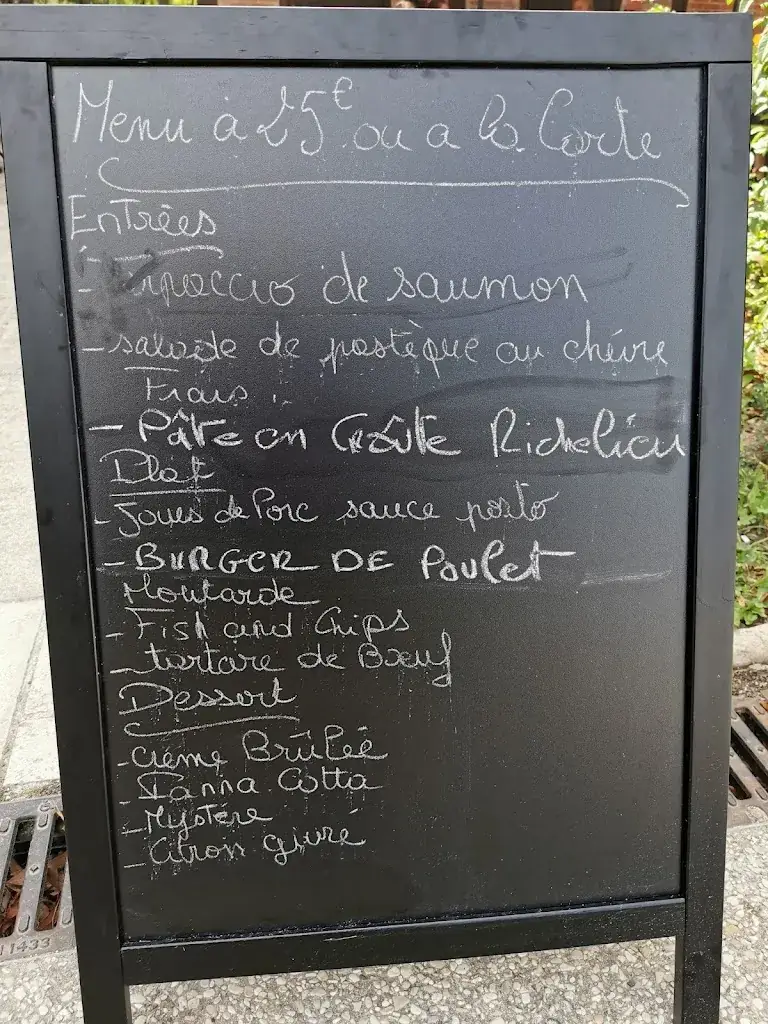 Menu à 25€ ou a la Carte
Entrées
- de saumon
- salade de pastèque au chèvre
Frais
- Pâte en Croûte Richelieu
Plat
- Joues de Porc sauce porto
- BURGER DE Poulet
Moutarde
- Fish and Chips
- tartare de Bœuf
Dessert
- Crème Brûlée
- Panna Cotta
- Mystère
- Citron givré
11433